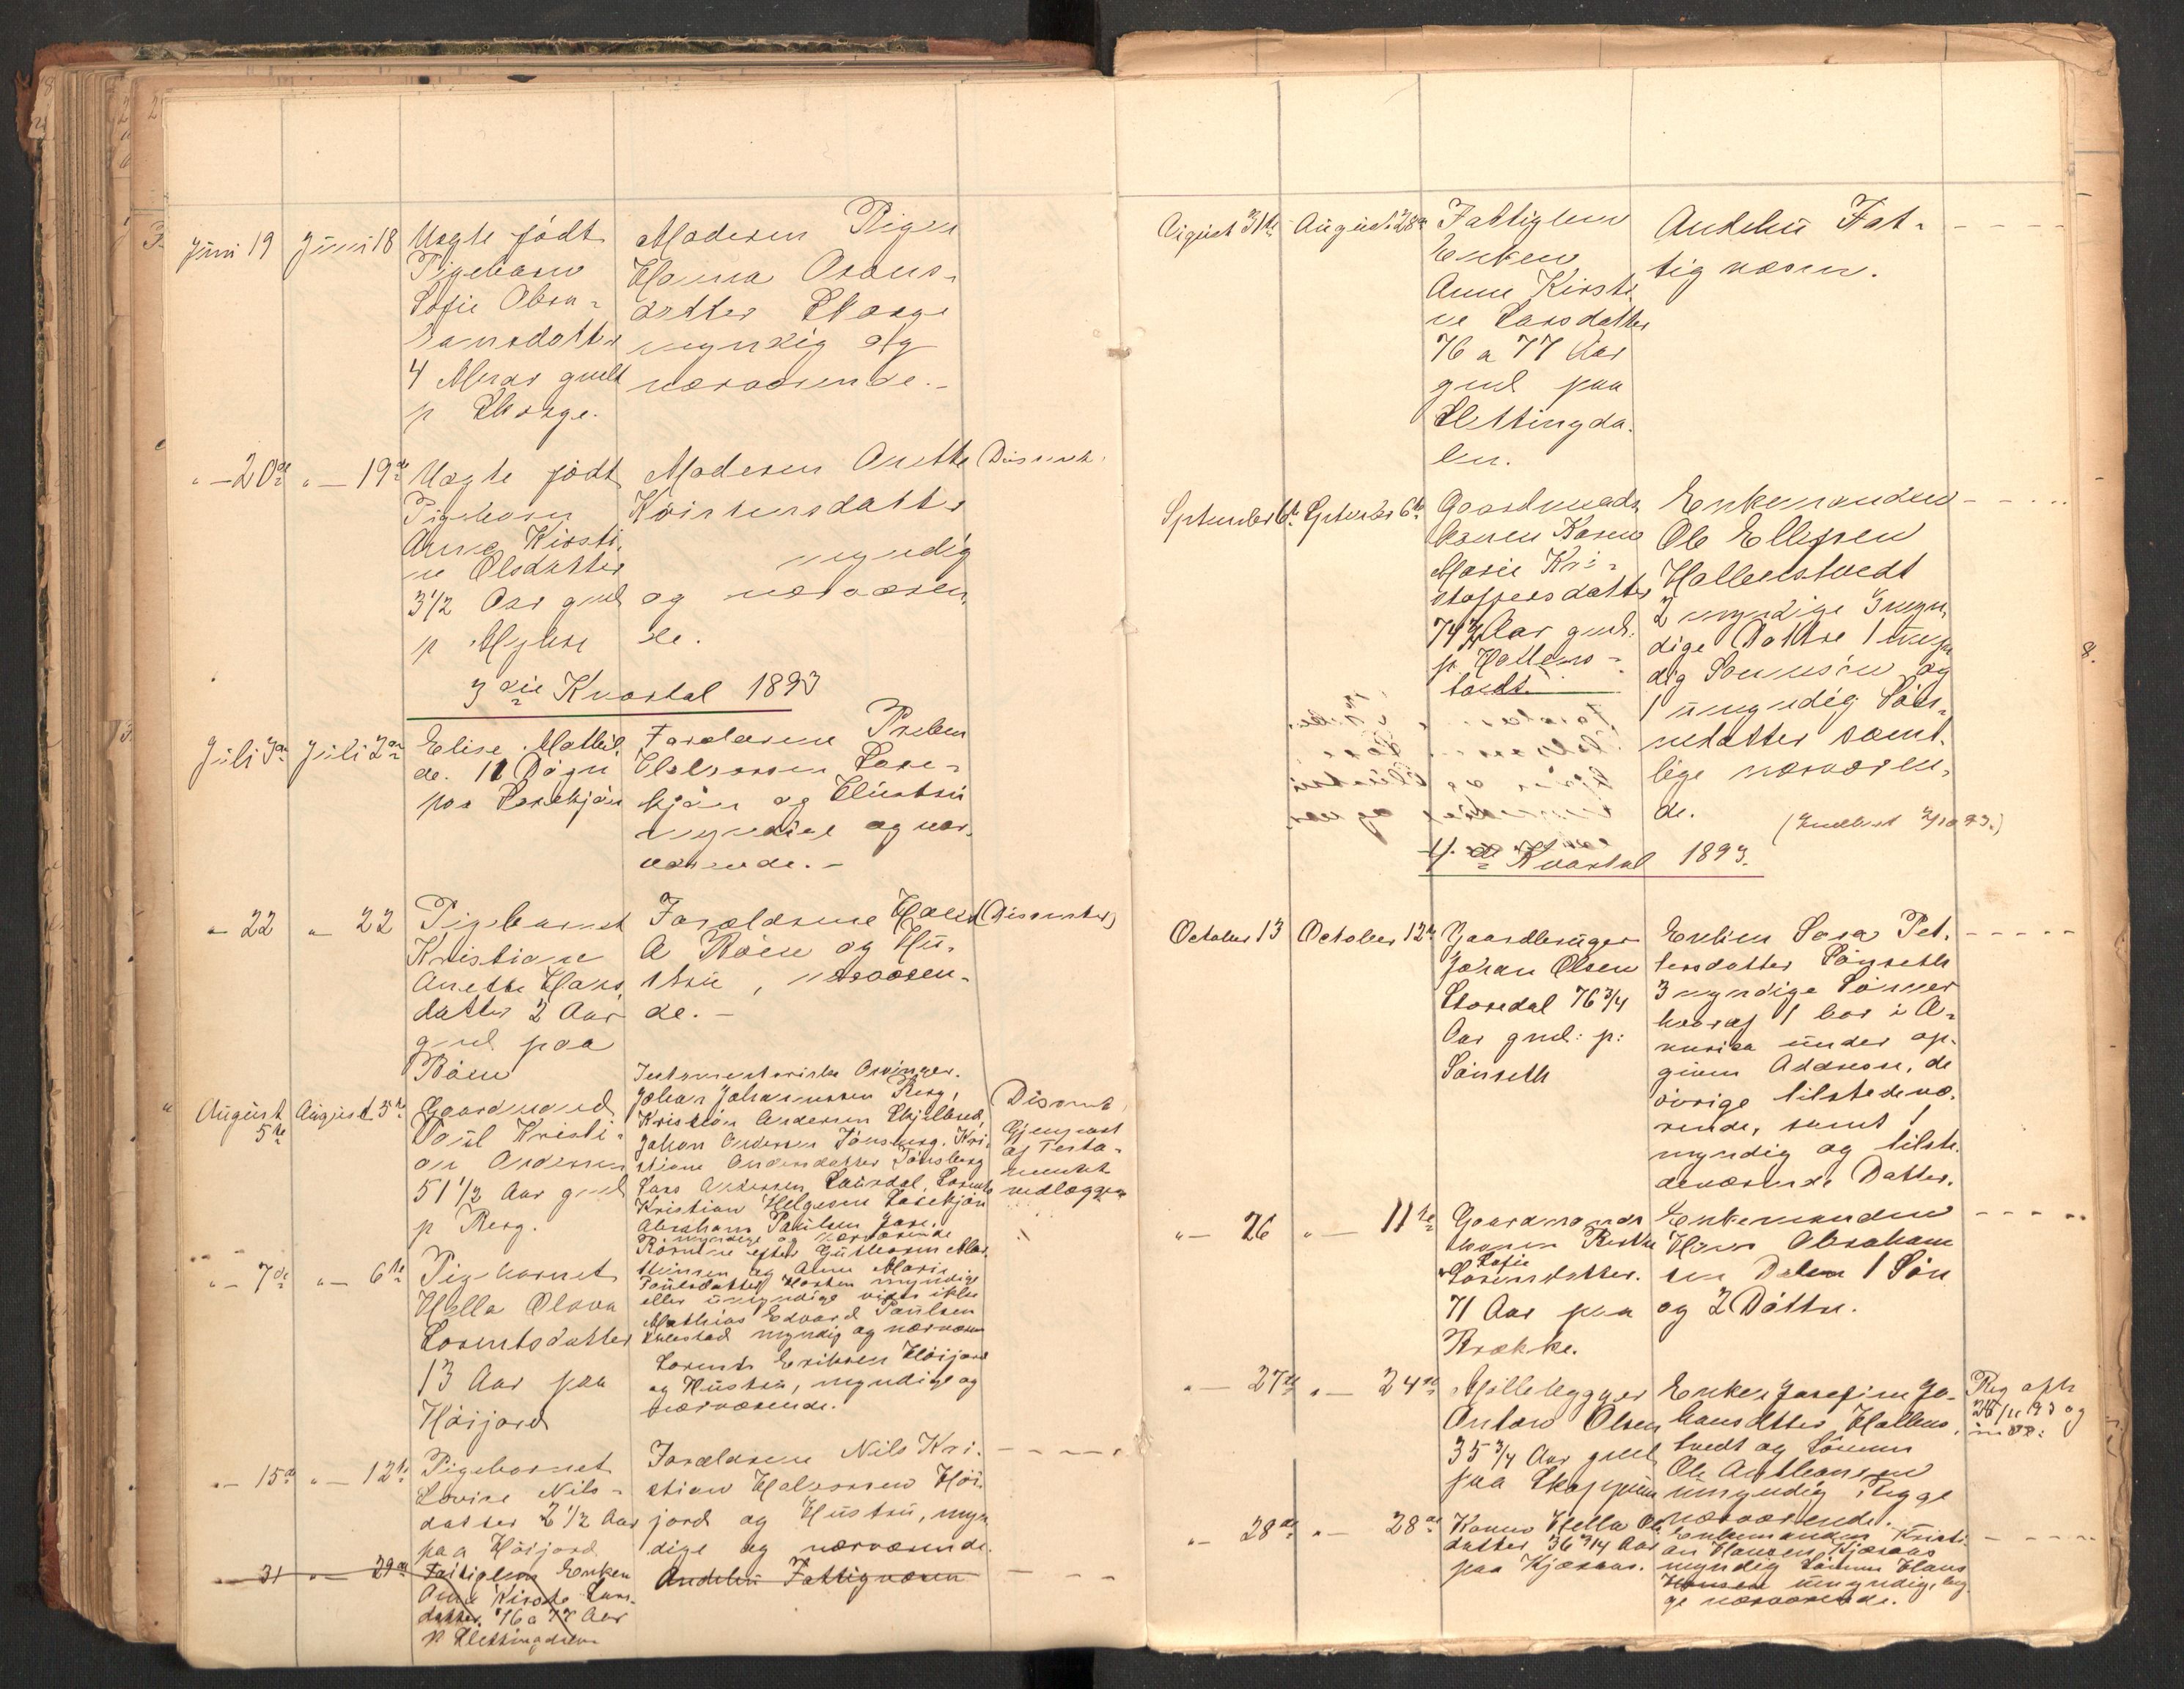 Juni 19 Juni 18 Uægte født
Pigebarn
Sofie Abra-
hamsdatter
4 Mdr gmlt
p Skorge.
Moderen Pigen
Hanna Arons-
datter Skorge
myndig og
nærværende.-
"-20de "-19de Uægte født
Pigebarn
Anna Kirsti-
ne Olsdatter
3 1/2 Aar gml
p Myhre
Moderen Anette
Kristensdatter
myndig
og nærværen-
de.
3die Kvartal 1893
Juli 3die Juli 2den Elise Mathil-
de. 11 Døgn
paa Lasekjøn
Forældrene Preben
Halvorsen Lase-
kjøn og Hustru
myndige og nær-
værende.-
" 22 " 22 Pigebarnet
Kristiane
Anette Hans-
datter 2 Aar
gml paa
Bøen
Forældrene Hans
A Bøen og Hu-
stru, nærværen-
de.-
(Dissenter)
August 5te August 3die Gaardmand
Poul Kristi-
an Andersen
51 1/2 Aar gml
p Berg.
Testamentariske Arvinger.
Johan Johannessen Berg,
Kristian Andersen Skjelbred,
Johan Andersen Tønsberg. Kri-
stiane Andersdatter Tønsberg
Lars Andersen Laurdal, Lorents
Kristian Helgesen Lasekjøn
Abraham Paulsen Jare.
myndige og nærværende
Dissent.
Gjenpart
af Testa-
mentet
vedlægges
"-7de "-6te Pigebarnet
Hella Olava
Lorentsdatter
13 Aar paa
Høijord
Mathias Edvard Paulsen
myndig og nærværen
Lorents Eriksen Høijord
og Hustru, myndige og
nærværende.
"-15de "-12te Pigebarnet
Lovise Nils-
datter 2 1/2 Aar
paa Høijord
Forældrene Nils Kri-
stian Halvorsen Høi-
jord og Hustru, myn-
dige og nærværende.
31 "-29de Fattiglem Enken
Anne Kirstine Lars-
datter. 76 a 77 Aar
p Slettingdalen
Andebu Fattigvæsen
August 31te August 28de Fattiglem
Enken
Anne Kirsti-
ne Larsdatter
76 a 77 Aar
gml paa
Slettingda-
len.
Andebu Fat-
tigvæsen.
September 6te September 6te Gaardmands
konen Karen
Marie Kri-
stoffersdatter
74 3/4 Aar gml.
p Hallens-
tvedt.
Enkemanden
Ole Ellefsen
Hallenstvedt
2 myndige Sønner 3 myn-
dige Døttre 1 umyn
dig Sønnesøn og
1 umyndig Søn-
nedatter samt-
lige nærværen-
de.
(Indberet 2/10 93.)
4de Kvartal 1893.
October 13 October 12te Gaardbruger
Johan Olsen
Storedal 76 3/4
Aar gml: p:
Sønseth
Enken Sara Pet-
tersdatter Sønseth
3 myndige Sønner
hvoraf 1 bor i A-
merika under op-
given Addresse, de
øvrige tilstedevæ-
rende, samt 1
myndig og tilste-
deværende Datter.
"-26 "-11te Gaardmands
konen Berthe
Sofie
Sørensdatter.
71 Aar paa
Brække.
Enkemanden
Hans Abraham
sen Dalen 1 Søn
og 2 Døttre.
"-27de "-24de Møllebygger
Anton Olsen
35 3/4 Aar gml
paa Skoppum
Enken Josefine Jo-
hansdtter Hallens-
tvedt og Sønnen
Ole Anthonsen
umyndig, begge
nærværende.
"-28de "-28de Konen Hella Ols-
datter 36 3/4 Aar
paa Kjæraas.
Enkemanden Kristi-
an Hansen Kjæraas
myndig Sønnen Hans
Hansen umyndig, beg-
ge nærværende.